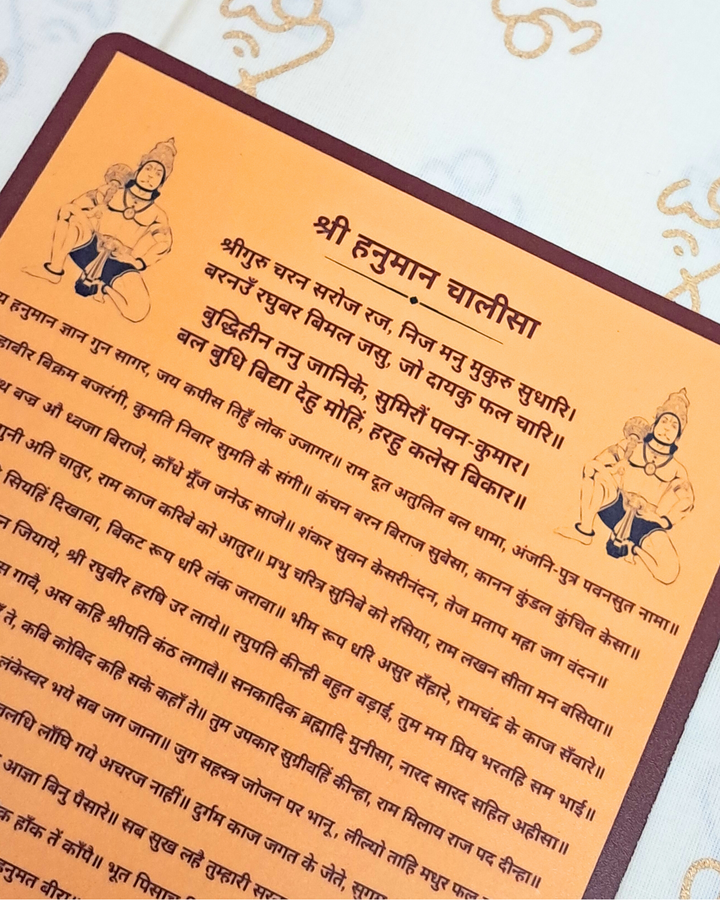 श्री हनुमान चालीसा
श्रीगुरु चरन सरोज रज, निज मनु मुकुरु सुधारि।
बरनउँ रघुबर बिमल जसु, जो दायकु फल चारि॥
बुद्धिहीन तनु जानिके, सुमिरौं पवन-कुमार।
बल बुधि बिद्या देहु मोहिं, हरहु कलेस बिकार॥
हनुमान ज्ञान गुन सागर, जय कपीस तिहुँ लोक उजागर॥ राम दूत अतुलित बल धामा, अंजनि-पुत्र पवनसुत नामा॥
बिक्रम बजरंगी, कुमति निवार सुमति के संगी॥ कंचन बरन बिराज सुबेसा, कानन कुंडल कुंचित केसा॥
बज्र औ ध्वजा बिराजे, काँधे मूँज जनेऊ साजे॥ शंकर सुवन केसरीनंदन, तेज प्रताप महा जग वंदन॥
गुनी अति चातुर, राम काज करिबे को आतुर॥ प्रभु चरित्र सुनिबे को रसिया, राम लखन सीता मन बसिया॥
सियहिं दिखावा, बिकट रूप धरि लंक जरावा॥ भीम रूप धरि असुर सँहारे, रामचंद्र के काज सँवारे॥
जियाये, श्री रघुबीर हरषि उर लाये॥ रघुपति कीन्ही बहुत बड़ाई, तुम मम प्रिय भरतहि सम भाई॥
गावै, अस कहि श्रीपति कंठ लगावै॥ सनकादिक ब्रह्मादि मुनीसा, नारद सारद सहित अहीसा॥
ते, कबि कोबिद कहि सके कहाँ ते॥ तुम उपकार सुग्रीवहिं कीन्हा, राम मिलाय राज पद दीन्हा॥
लंकेस्वर भये सब जग जाना॥ जुग सहस्त्र जोजन पर भानू, लील्यो ताहि मधुर फल
लाँघि गये अचरज नाहीं॥ दुर्गम काज जगत के जेते, सुगम
आज्ञा बिनु पैसारे॥ सब सुख लहै तुम्हारी
हाँक तें काँपै॥ भूत
हनुमत